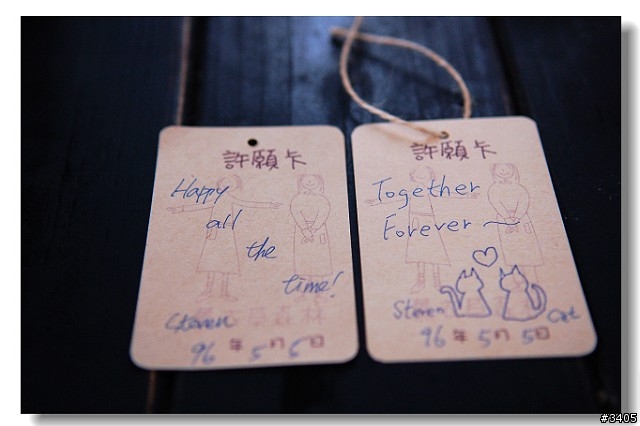 許願卡
Happy
all
the
time!
Steven
96年5月6日
許願卡
Together
Forever~
Steven Cat
96年5月5日
#3405